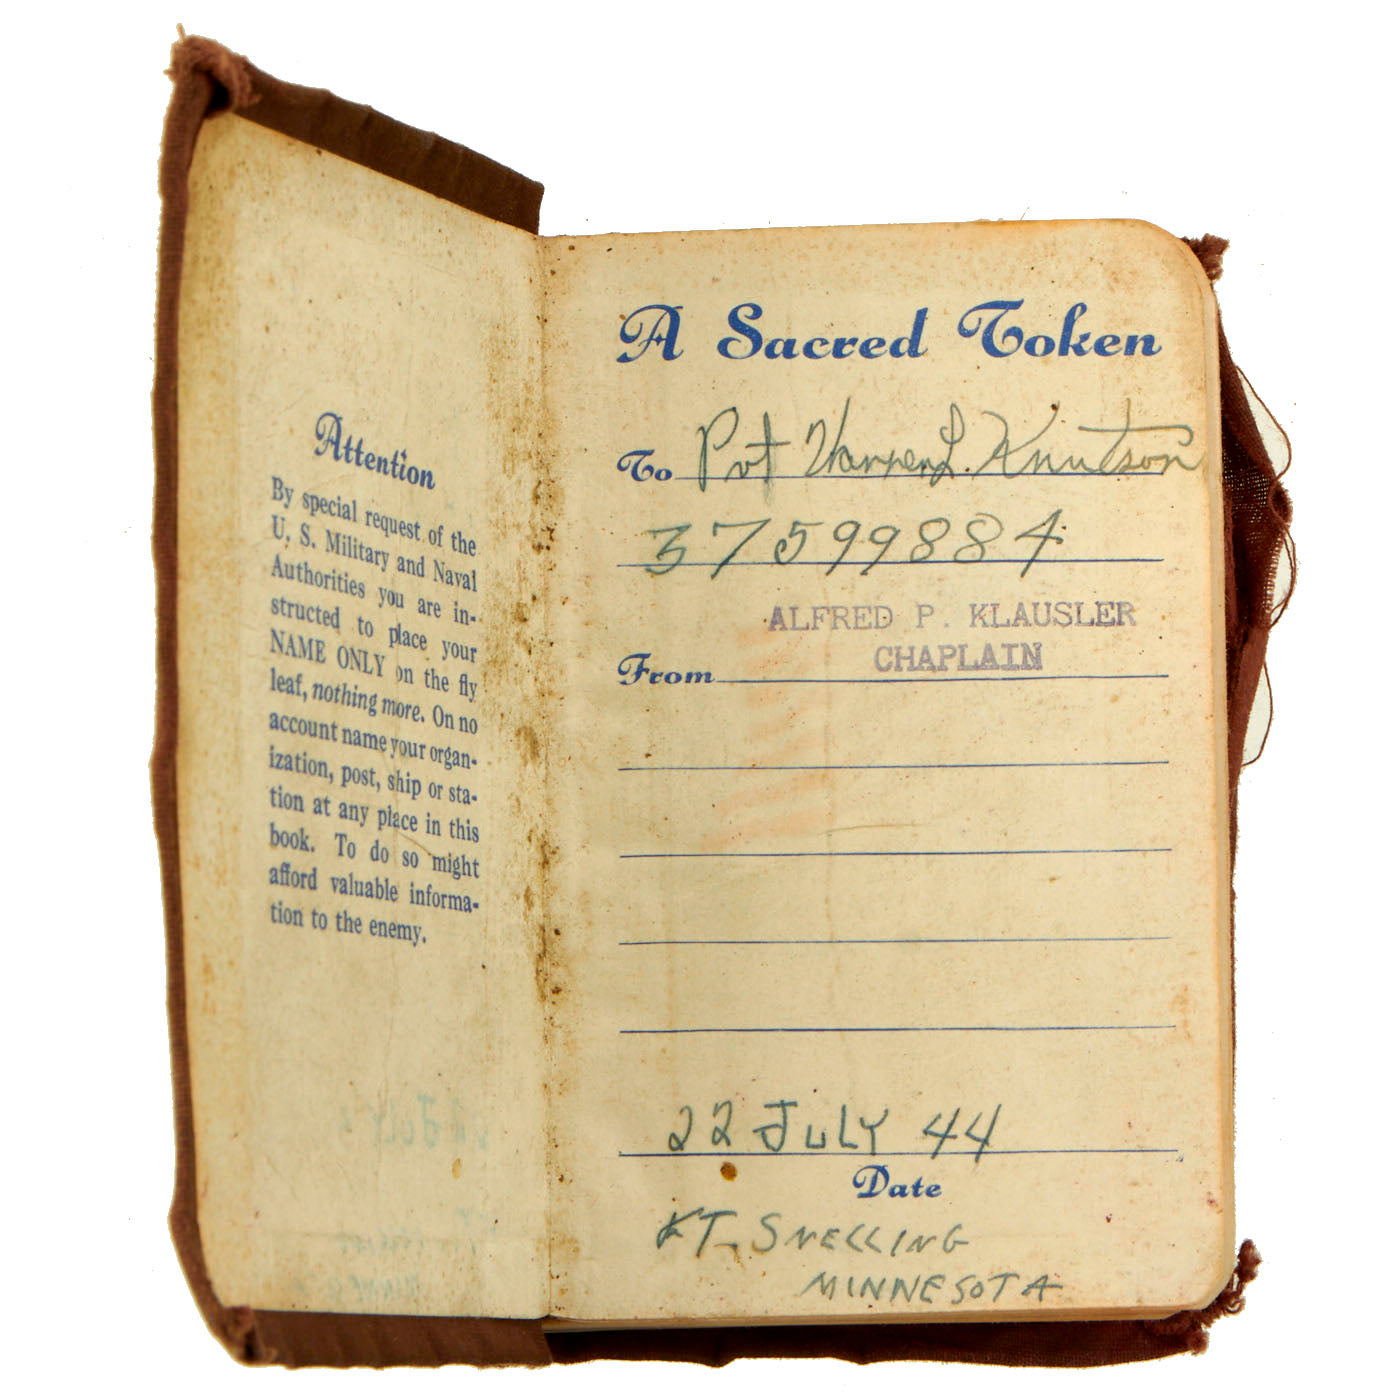 Attention
By special request of the
U. S. Military and Naval
Authorities you are in-
structed to place your
NAME ONLY on the fly
leaf, nothing more. On no
account name your organ-
ization, post, ship or sta-
tion at any place in this
book. To do so might
afford valuable informa-
tion to the enemy.
A Sacred Token
To Pvt L. Knutson
37599884
ALFRED P. KLAUSLER
CHAPLAIN
From
22 JULY 44
Date
FT. SNELLING
MINNESOTA